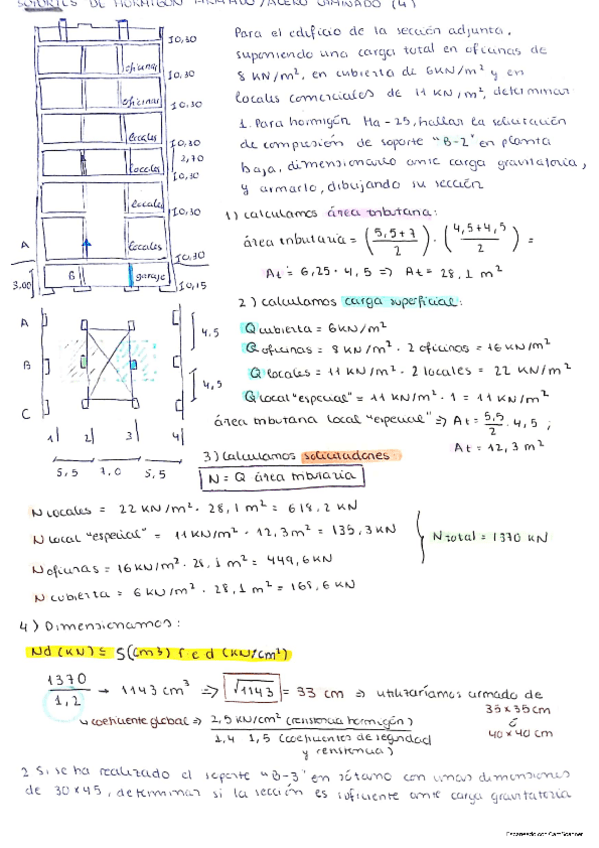 SOPORTES DE HORMIGÓN ARMADO/ACERO LAMINADO (4)
Para el edificio de la sección adjunta,
suponiendo una carga total en oficinas de
8 KN/m², en cubierta de 6KN/m² y en
locales comerciales de 11 KN/m², determinar
1. Para hormigón Ha-25, hallar la solicitación
de compresión de soporte "B-2" en planta
baja, dimensionarlo ante carga gravitatoria,
y armarlo, dibujando su sección
I0,30
oficinas
I0,30
oficinas
I0,30
locales
I0,30
2,70
locales
I0,30
locales
I0,30
A
locales
I0,30
3.00
B
garaje
I0,15
1) calculamos área tributaria:
área tributaria = (5,5+7/2) · (4,5+4,5/2) =
At = 6,25 · 4,5 => At = 28,1 m²
2) calculamos carga superficial:
Q cubierta = 6KN/m²
Q oficinas = 8 KN/m² · 2 oficinas = 16 KN/m²
Q locales = 11 KN/m² · 2 locales = 22 KN/m²
Q local "especial" = 11 KN/m² · 1 = 11 KN/m²
área tributaria local "especial" => At = 5,5/2 · 4,5 ;
At = 12,3 m²
A
B
C
4.5
4,5
1 2 3 4
5,5 7,0 5,5
3) Calculamos solicitaciones:
N = Q área tributaria
N locales = 22 KN/m² · 28,1 m² = 618,2 KN
N local "especial" = 11 KN/m² · 12,3 m² = 135,3 KN
N oficinas = 16 KN/m² · 28,1 m² = 449,6 KN
N cubierta = 6 KN/m² · 28,1 m² = 168,6 KN
N total = 1370 KN
4) Dimensionamos:
Nd (KN) ≤ S(cm²) f c d (KN/cm²)
1370/1,2 → 1143 cm³ => √1143 = 33 cm => utilizaríamos armado de
35 x 35 cm
ó
40 x 40 cm
↳ coeficiente global => 2,5 KN/cm² (resistencia hormigón)/1,4 1,5 (coeficientes de seguridad
y resistencia)
2 Si se ha realizado el soporte "B-3" en sótano con unas dimensiones
de 30 x 45, determinar si la sección es suficiente ante carga gravitatoria
Escaneado con CamScanner